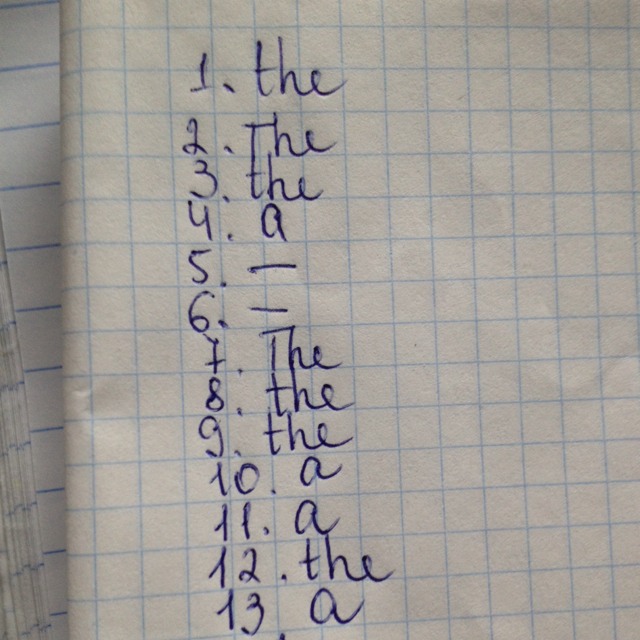 1. the
2. The
3. the
4. a
5. —
6. —
7. The
8. the
9. the
10. a
11. a
12. the
13 a